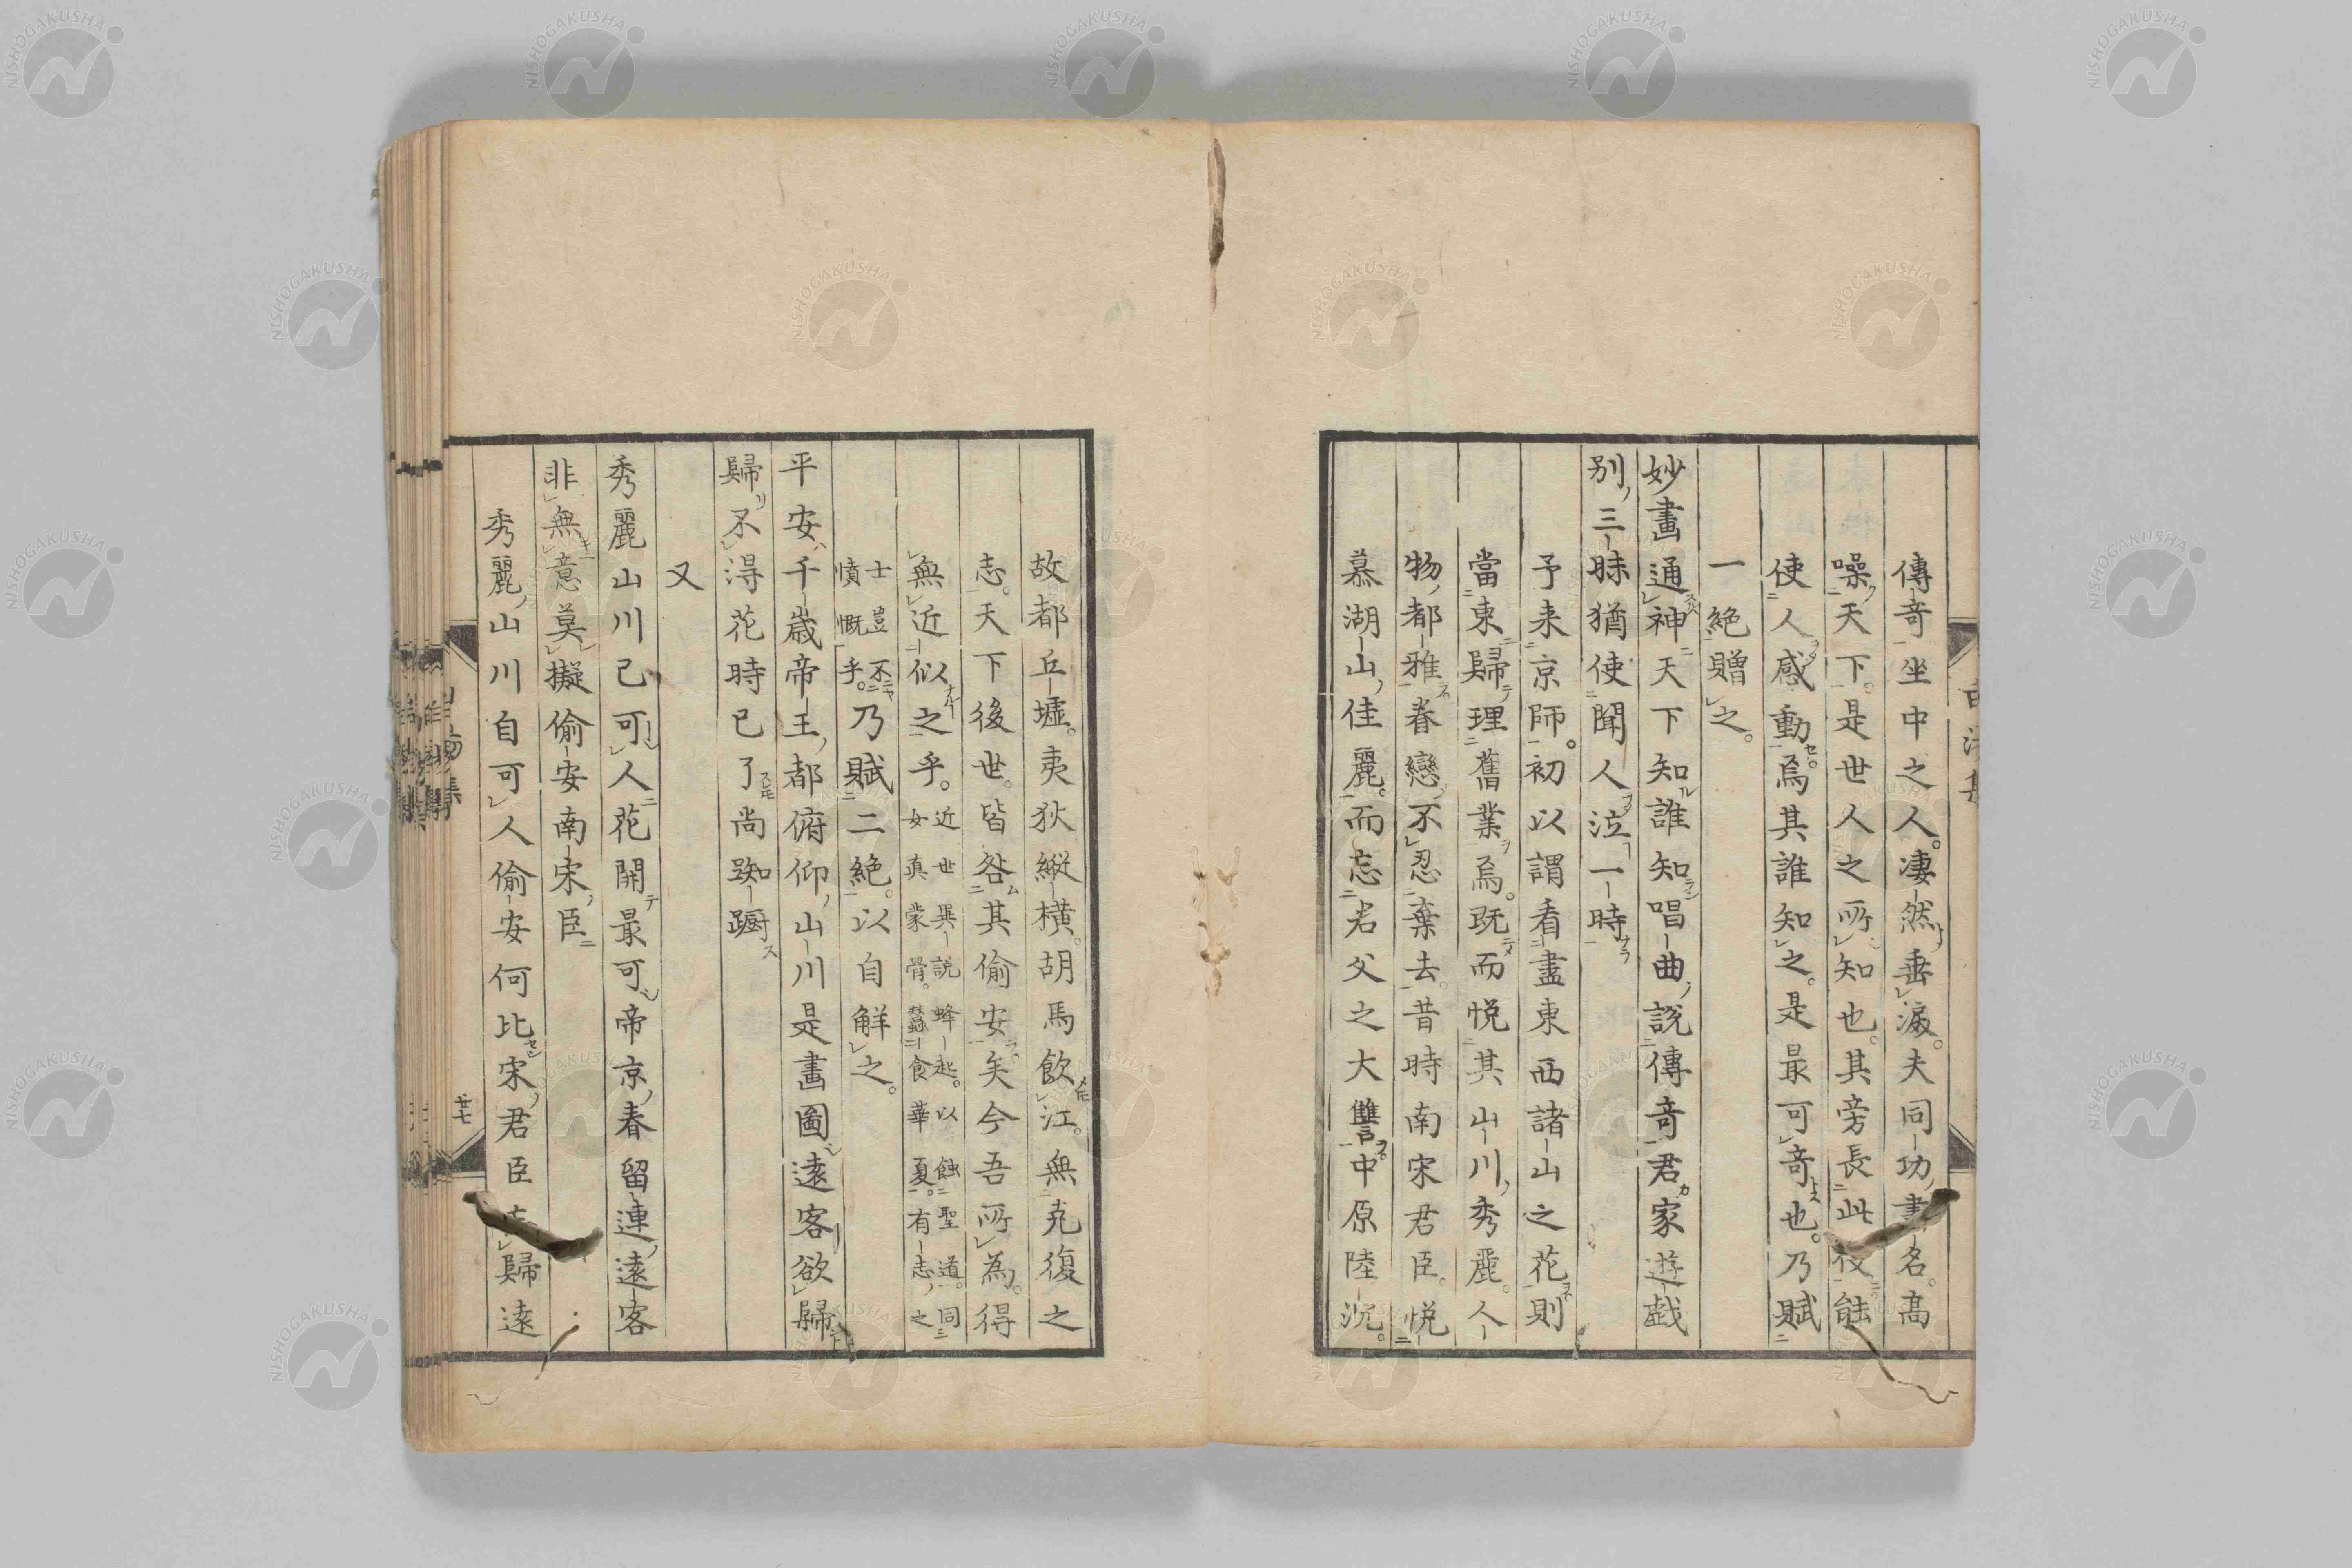 傳奇坐中之人。凄然垂淚。夫同功畫名。高
噪天下。是世人之所知也。其旁長此伎能
使人感動焉其誰知之。是最可奇也。乃賦
一絶贈之。
妙畫通神天下知誰知唱曲說傳奇君家遊戯
別三昧猶使聞人泣一時
予来京師。初以謂看盡東西諸山之花則
當東歸理舊業焉。既而悦其山川秀麗。人
物都雅眷戀不忍棄去。昔時南宋君臣。悦
慕湖山佳麗。而忘君父之大讐。中原陸沉。
故都丘墟。夷狄縦横。胡馬飲江。無克復之
志。天下後世。皆咎其偷安矣今吾所為。得
無近似之乎。近世異説蜂起。以蝕聖道。同
女真蒙骨。蠶食華夏。有志之
士豈不
憤慨乎。乃賦二絶。以自解之。
平安千歲帝王都俯仰山川是畫圖遠客欲歸
歸不得花時已了尚踟蹰
又
秀麗山川已可人花開最可帝京春留連遠客
非無意莫擬偷安南宋臣
秀麗山川自可人偷安何比宋君臣歸遠
廿七
NISHOGAKUSHA